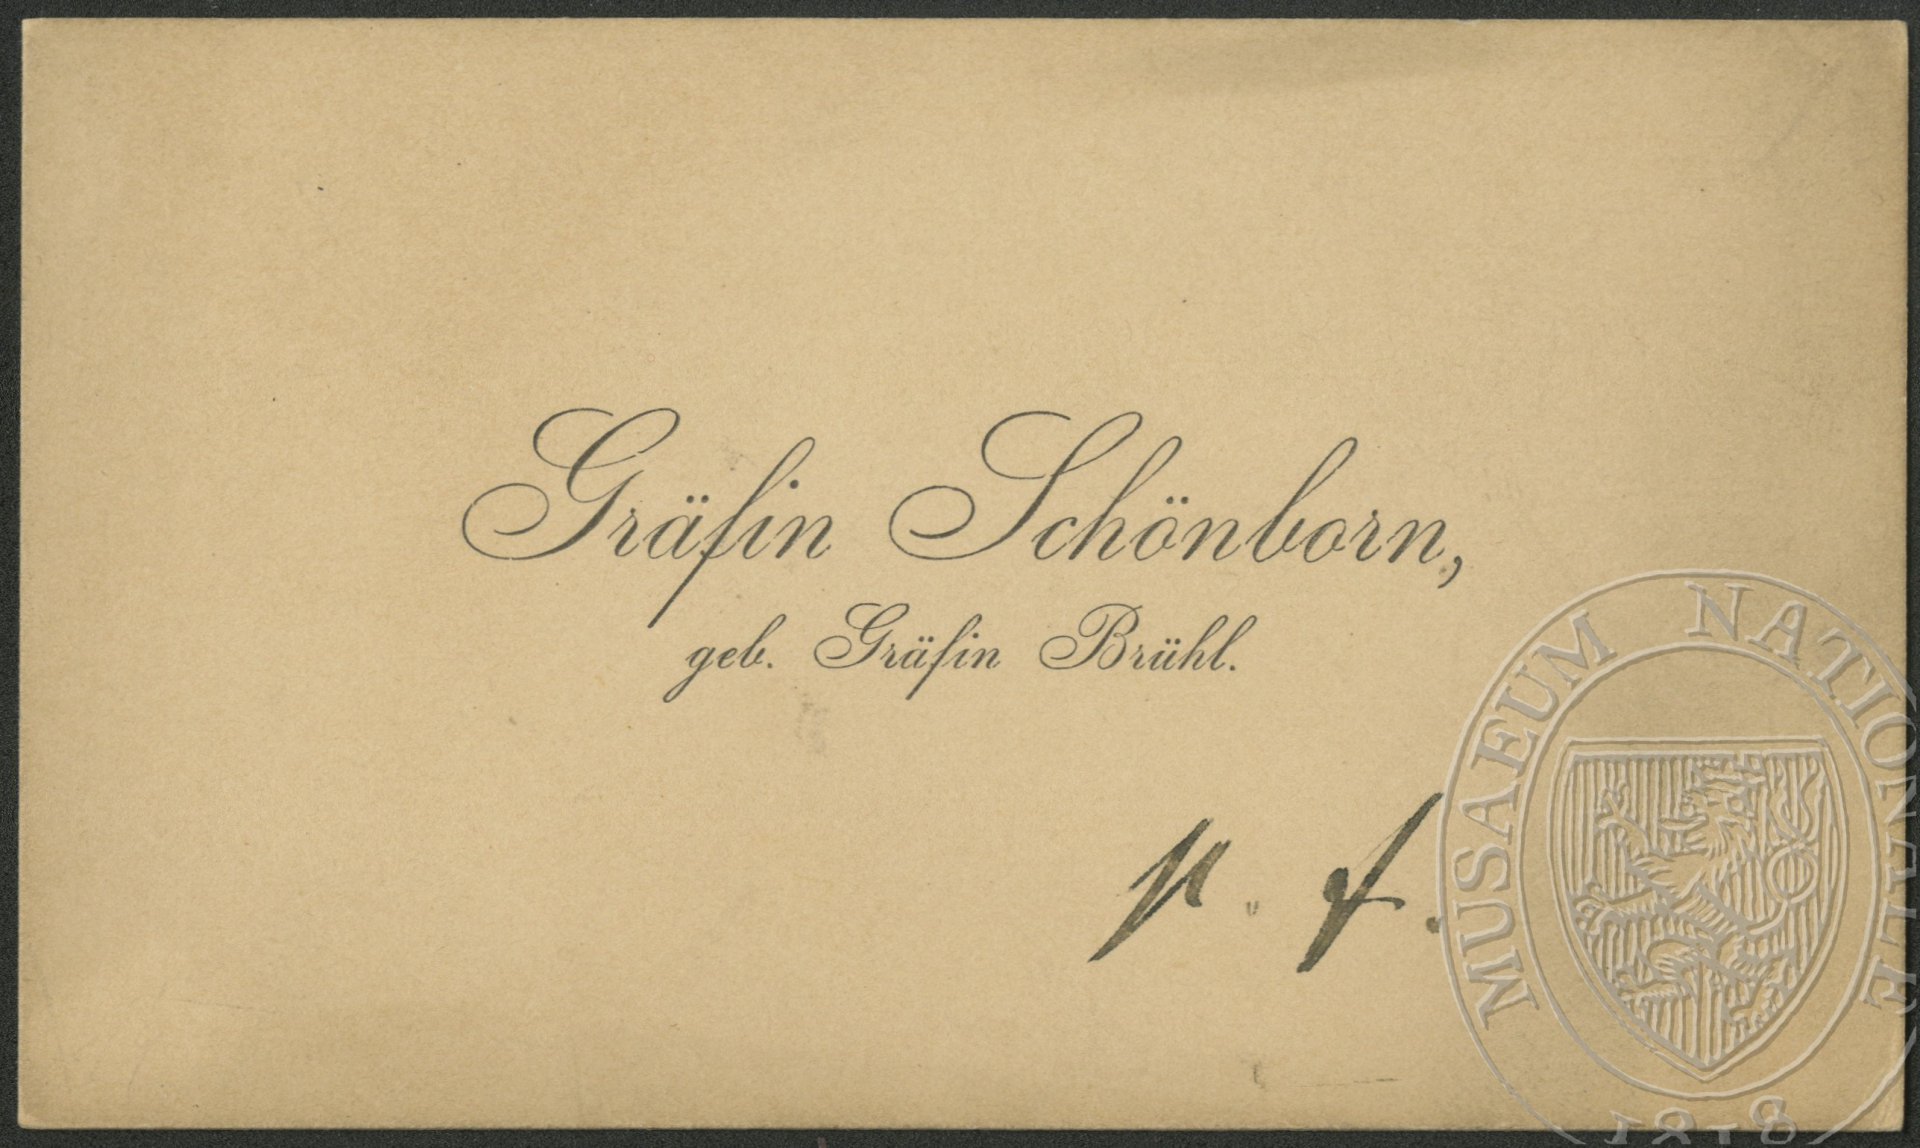 Gräfin Schönborn,
geb. Gräfin Brühl.
p. f.
MUSAEUM NATIONALE
1818